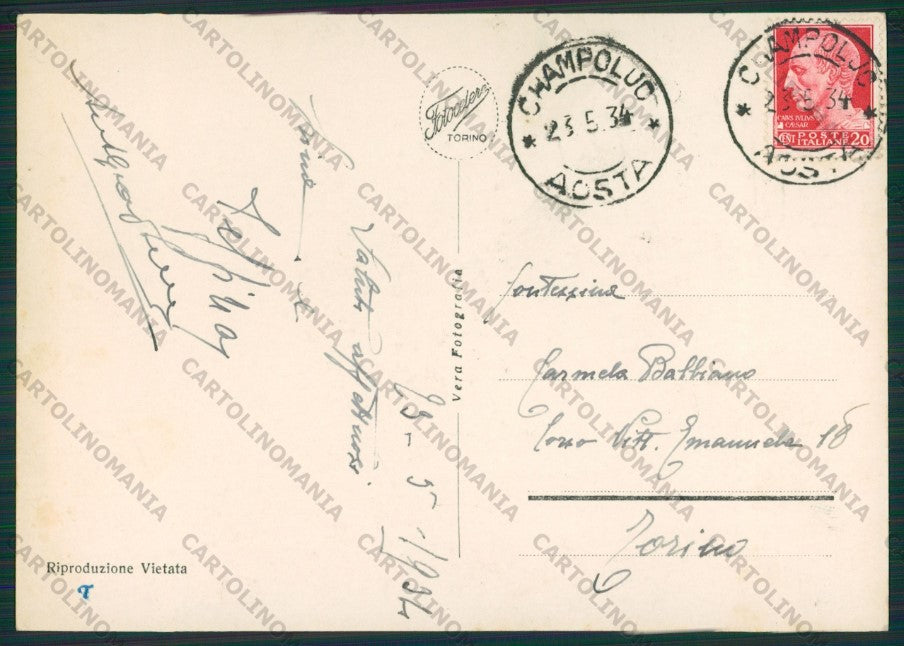 CHAMPOLUC
* 23.5.34 *
AOSTA
CHAMPOLUC
* 23.5.34 *
AOSTA
CAIUS IVLIVS
CAESAR
POSTE
ITALIANE 20
Fotocelere
TORINO
Vera Fotografia
23-5-1934
Saluti affettuosi
Contessina
Carmela Balbiano
Corso Vitt. Emanuele 18
Torino
Riproduzione Vietata
CARTOLINOMANIA